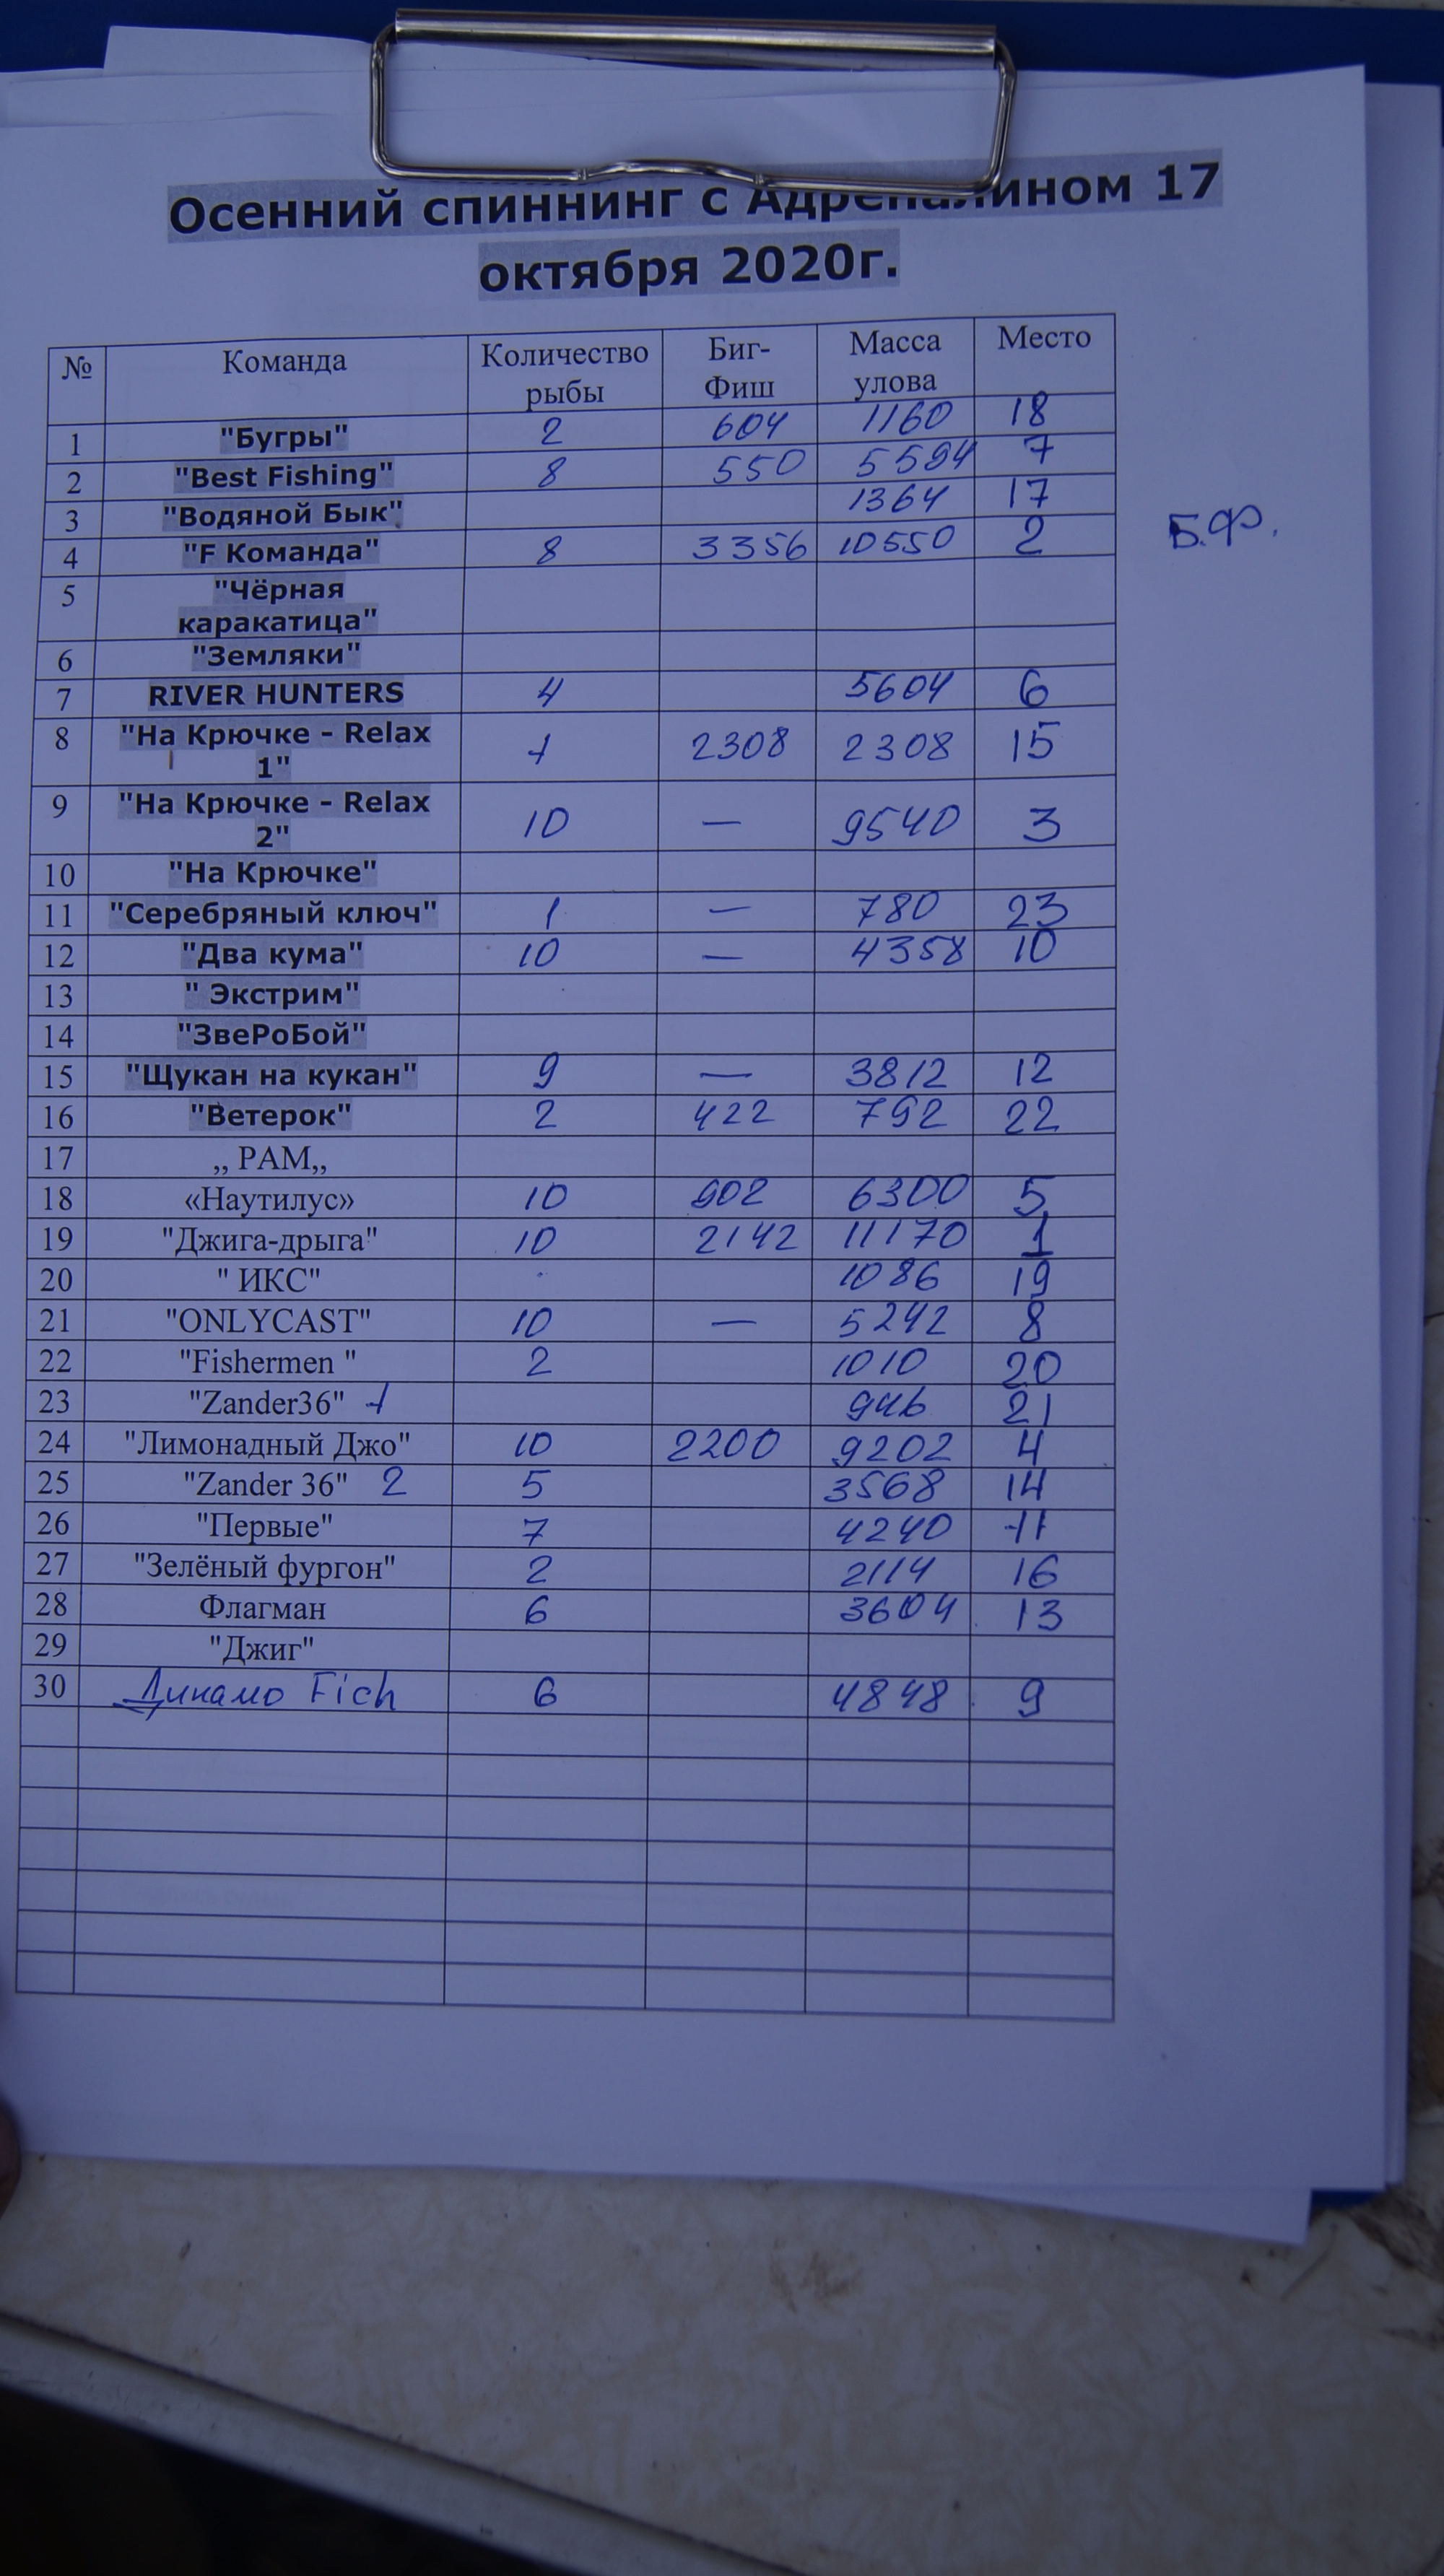 Осенний спиннинг с Адреналином 17
октября 2020г.
№ Команда Количество рыбы Биг-Фиш Масса улова Место
1 "Бугры" 2 604 1160 18
2 "Best Fishing" 8 550 5594 7
3 "Водяной Бык" 1364 17
4 "F Команда" 8 3356 10550 2 Б.Ф.
5 "Чёрная каракатица"
6 "Земляки"
7 RIVER HUNTERS 4 5604 6
8 "На Крючке - Relax 1" 1 2308 2308 15
9 "На Крючке - Relax 2" 10 — 9540 3
10 "На Крючке"
11 "Серебряный ключ" 1 — 780 23
12 "Два кума" 10 — 4358 10
13 " Экстрим"
14 "ЗвеРоБой"
15 "Щукан на кукан" 9 — 3812 12
16 "Ветерок" 2 422 792 22
17 ,, РАМ,,
18 «Наутилус» 10 902 6300 5
19 "Джига-дрыга" 10 2142 11170 1
20 " ИКС" 1086 19
21 "ONLYCAST" 10 — 5242 8
22 "Fishermen " 2 1010 20
23 "Zander36" 1 946 21
24 "Лимонадный Джо" 10 2200 9202 4
25 "Zander 36" 2 5 3568 14
26 "Первые" 7 4240 11
27 "Зелёный фургон" 2 2114 16
28 Флагман 6 3604 13
29 "Джиг"
30 Динамо Fich 6 4848 9